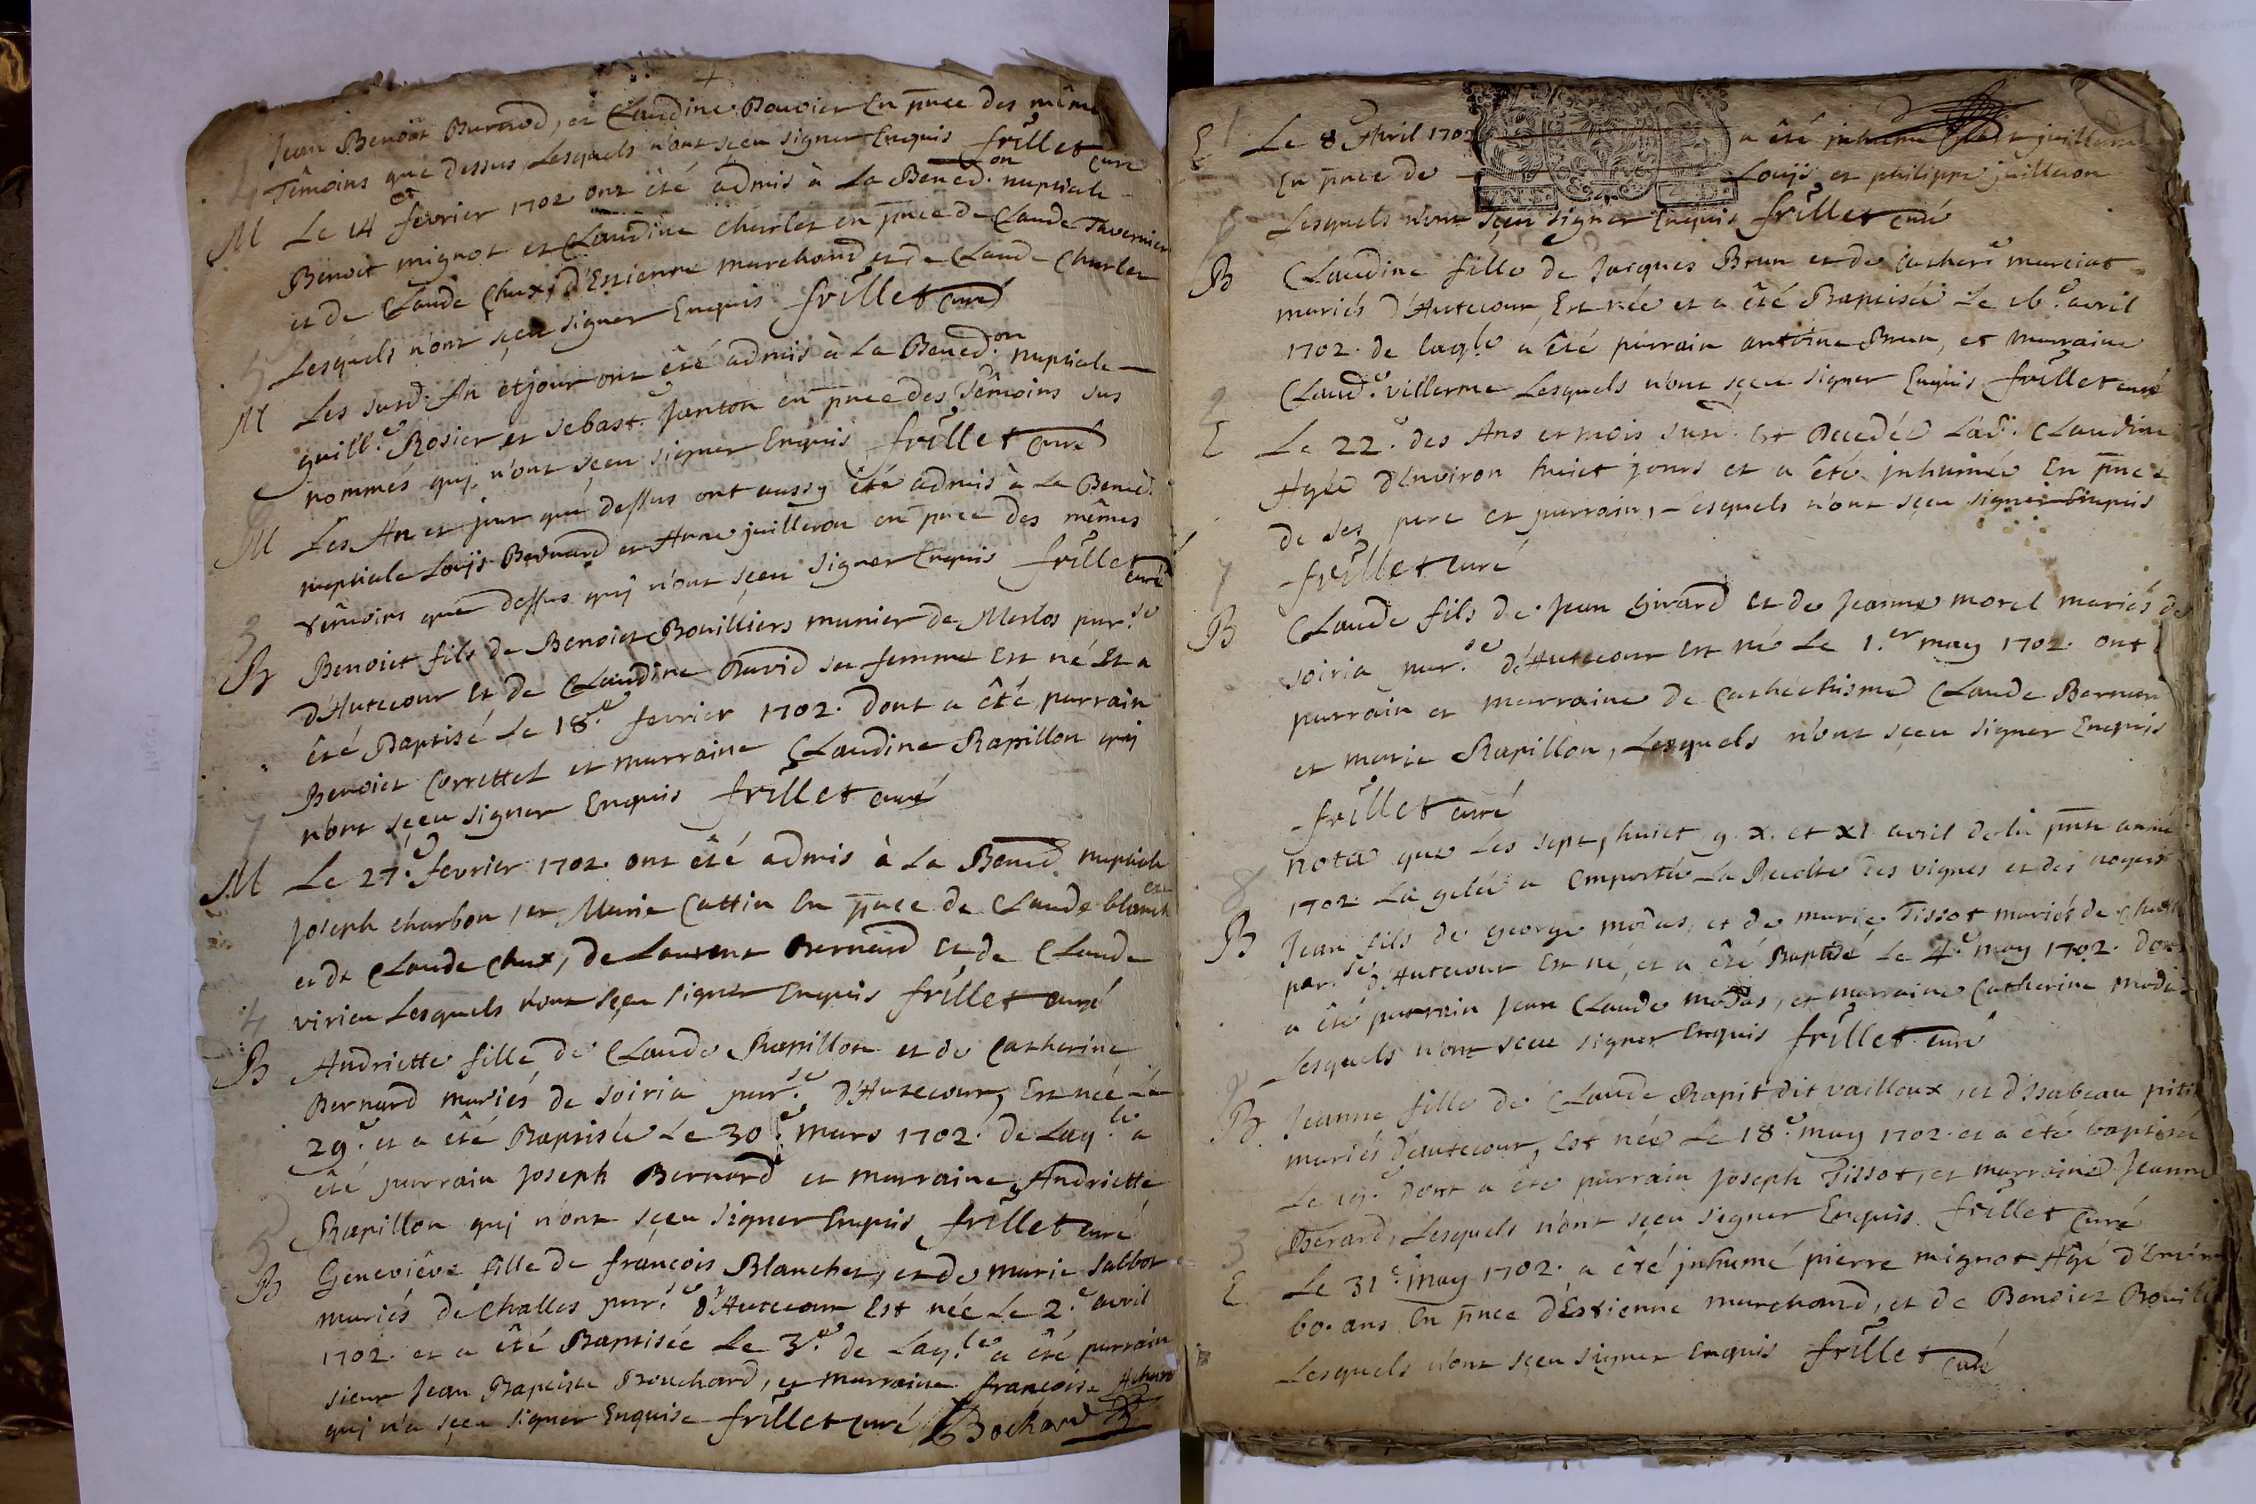 Jean Benoît Buraud, et Claudine Bouvier En pñce des même
Têmoins que dessus Lesquels n'ont sçeu signer Enquis frillet curé
M Le 14 fevrier 1702 ont êté admis à La Bened.on nuptiale
Benoit mignot et Claudine charlet en pñce de Claude Tavernier
et de Claude Chux, d'Estienne marchand et de Claude Charlet
Lesquels n'ont sçeu signer Enquis frillet curé
M Les susd. An et jour ont êté admis à La Bened.on nuptiale
guill.e Rosier et sebast.e Janton en pñce des Têmoins sus
nommés quj n'ont sçeu signer Enquis frillet curé
M Les An et jour que dessus ont aussy été admis à La Bened.
nuptiale Louÿs Bernard et Anne juilleron en pñce des mêmes
têmoins que dessus quj n'ont sçeu signer Enquis frillet curé
3
B Benoict fils de Benoict Bouilliers munier de Merlos par.se
d'Autecour et de Claudine David sa femme Est né Et a
êté Baptisé Le 18.e fevrier 1702. Dont a êté parrain
Benoict Correttet et marraine Claudine Rapillon quj
n'ont sçeu signer Enquis frillet curé
7
M Le 27.e fevrier 1702. ont êté admis à La Bened. nuptiale
Joseph charbon, et Marie Cattin En pñce de Claude blanch
et de Claude Chux, de Laurent Bernard et de Claude
virieu Lesquels n'ont sçeu signer Enquis frillet curé
4
B Andriette fille de Claude Rapillon et de Catherine
Bernard mariés de soiria par.se d'Autecour, Est née Le
29.e et a êté Baptisée Le 30.e mars 1702. de Laq.le a
êté parrain Joseph Bernard et marraine Andriette
Rapillon quj n'ont sçeu signer Enquis frillet curé
5
B Geneviêve fille de françois Blanchet, et de marie Salbot
mariés de Challes par.se d'Autecour Est née Le 2.e avril
1702. et a êté Baptisée Le 3.e de Laq.le a êté parrain
sieur Jean Baptiste Bouchard, et marraine françoise
quj n'a sçeu signer Enquise frillet curé Bochard
1
E Le 8.e Avril 1702 a êté juilleron
En pñce de Louÿs et philippe juilleron
Lesquels n'ont sçeu signer Enquis frillet curé
6
B Claudine fille de Jacques Brun et de Cather.e marciat
mariés d'Autecour Est née et a êté Baptisée Le 16.e avril
1702. de laq.le a êté parrain antoine Brun, et marraine
Claud.e villerme Lesquels n'ont sçeu signer Enquis frillet curé
2
E Le 22.e des Ans et mois susd. Est Decedée Lad. Claudine
Agée d'Environ huict jours et a êté jnhumée En pñce
de ses pere et parrain, Lesquels n'ont sçeu signer Enquis
frillet curé
7
B Claude fils de Jean Girard et de Jeanne morel mariés de
soiria par.se d'Autecour Est né Le 1.er may 1702. ont
parrain et marraine de Cathéchisme Claude Bernard
et marie Rapillon, Lesquels n'ont sçeu signer Enquis
frillet curé
nota que Les sept, huict 9. x. et xi avril de la pñte année
1702 La gelée a Emporté La Recolte des vignes et des noyers
8
B Jean fils de george modas, et de marie Tissot mariés de
par.se d'Autecour Est né, et a êté Baptisé Le 4.e may 1702. Dont
a êté parrain Jean Claude modas, et marraine Catherine modas
Lesquels n'ont sceu signer Enquis frillet curé
9
B Jeanne fille de Claude Rapit dit vailloux, et d'Isabeau
mariés d'autecour, Est née Le 18.e may 1702. et a êté baptisée
Le 19.e Dont a êté parrain Joseph Tissot, et marraine Jeanne
Berard, Lesquels n'ont sçeu signer Enquis. frillet curé
3
E. Le 31.e may 1702. a êté jnhumé pierre mignot Agé d'Environ
60. ans En pñce d'Estienne marchand, et de Benoict
Lesquels n'ont sçeu signer Enquis frillet curé